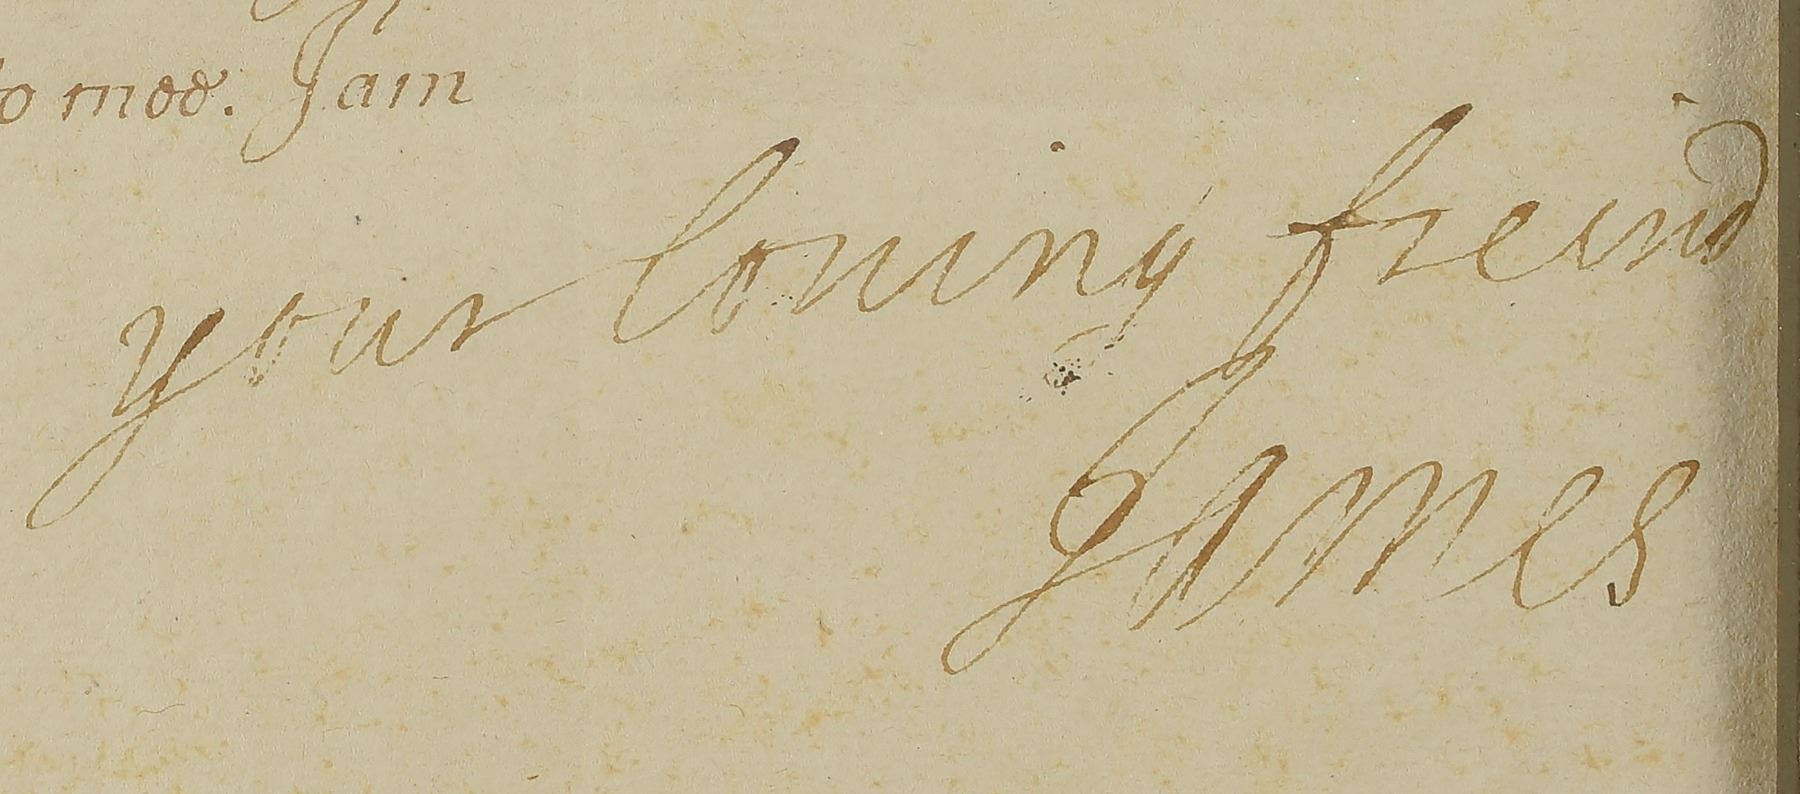 to mee. I am
your louing freind
James